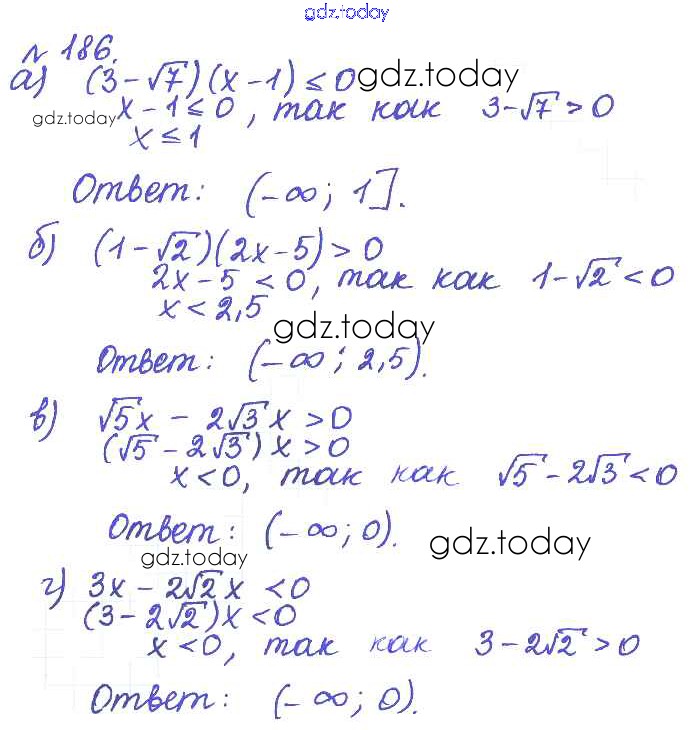 gdz.today
№ 186.
а) (3-√7)(x-1)≤0 gdz.today
gdz.today x-1≤0, так как 3-√7>0
x≤1
Ответ: (-∞; 1].
б) (1-√2)(2x-5)>0
2x-5<0, так как 1-√2<0
x<2,5
gdz.today
Ответ: (-∞; 2,5).
в) √5x - 2√3x>0
(√5-2√3)x>0
x<0, так как √5-2√3<0
Ответ: (-∞; 0).
gdz.today gdz.today
г) 3x-2√2x<0
(3-2√2)x<0
x<0, так как 3-2√2>0
Ответ: (-∞; 0).